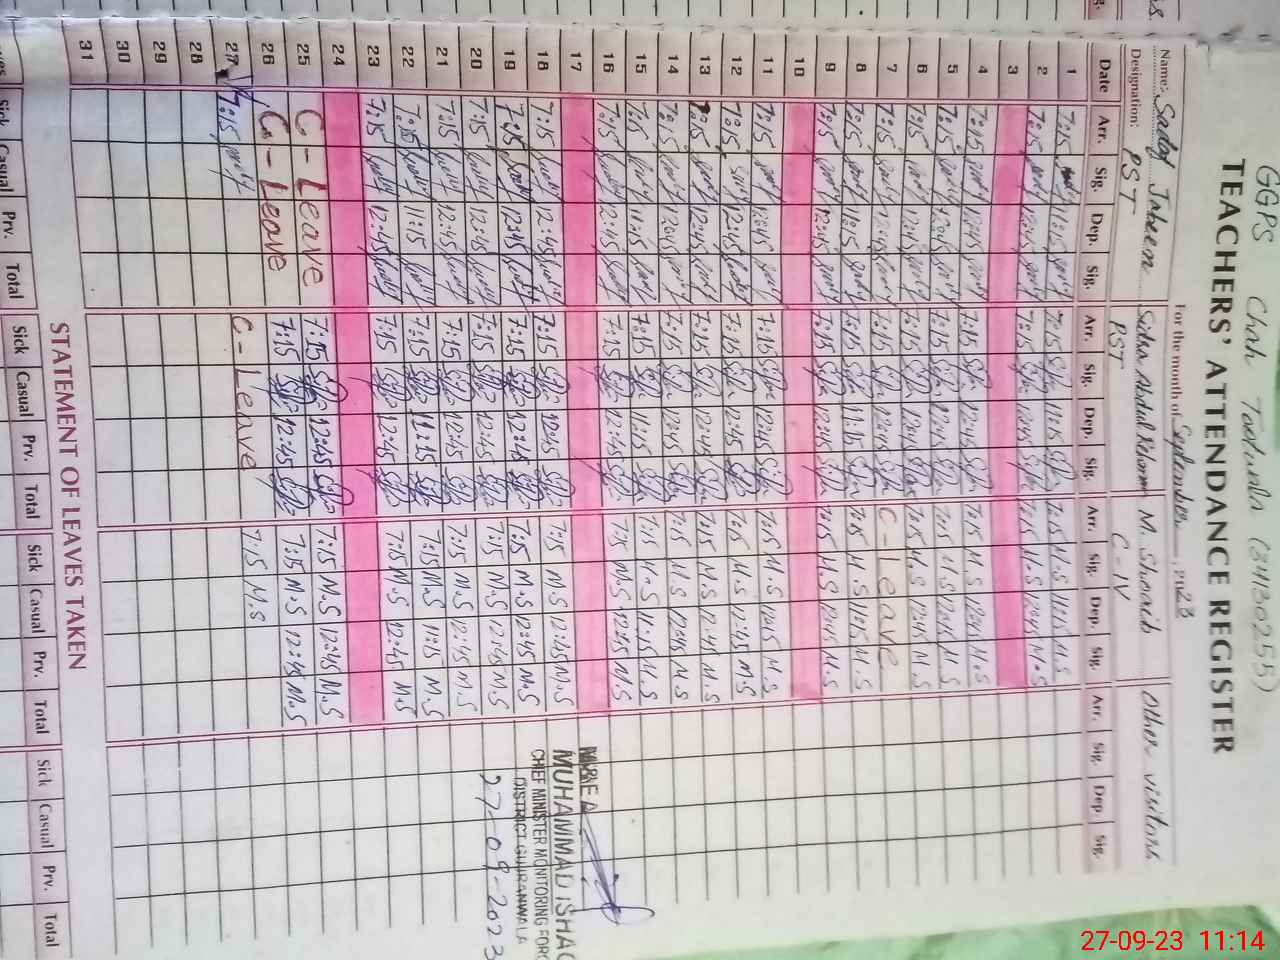 GGPS Chah Taiduala (34130255)
TEACHERS' ATTENDANCE REGISTER
For the month of September, 2023
Name: Sadaf Jabeen Sidra Abdul Rehman M. Shoaib Other visitors
Designation: PST PST C-IV
Date Arr. Sig. Dep. Sig. Arr. Sig. Dep. Sig. Arr. Sig. Dep. Sig. Arr. Sig. Dep. Sig.
1 7:15 11:15 7:15 11:15 7:15 M.S 11:15 M.S
2 7:15 12:45 7:15 12:45 7:15 M.S 12:45 M.S
3
4 7:15 12:45 7:15 12:45 7:15 M.S 12:45 M.S
5 7:15 12:45 7:15 12:45 7:15 M.S 12:45 M.S
6 7:15 12:45 7:15 12:45 7:15 M.S 12:45 M.S
7 7:15 12:45 7:15 12:45 C-Leave
8 7:15 11:15 7:15 11:15 7:15 M.S 11:15 M.S
9 7:15 12:45 7:15 12:45 7:15 M.S 12:45 M.S
10
11 7:15 12:45 7:15 12:45 7:15 M.S 12:45 M.S
12 7:15 12:45 7:15 12:45 7:15 M.S 12:45 M.S
13 7:15 12:45 7:15 12:45 7:15 M.S 12:45 M.S
14 7:15 12:45 7:15 12:45 7:15 M.S 12:45 M.S
15 7:15 11:15 7:15 11:15 7:15 M.S 11:15 M.S
16 7:15 12:45 7:15 12:45 7:15 M.S 12:45 M.S
17
18 7:15 12:45 7:15 12:45 7:15 M.S 12:45 M.S
19 7:15 12:45 7:15 12:45 7:15 M.S 12:45 M.S
20 7:15 12:45 7:15 12:45 7:15 M.S 12:45 M.S
21 7:15 12:45 7:15 12:45 7:15 M.S 12:45 M.S
22 7:15 11:15 7:15 11:15 7:15 M.S 11:15 M.S
23 7:15 12:45 7:15 12:45 7:15 M.S 12:45 M.S
24
25 C-Leave 7:15 12:45 7:15 M.S 12:45 M.S
26 C-Leave 7:15 12:45 7:15 M.S 12:45 M.S
27 7:15 C-Leave 7:15 M.S
28
29
30
31
MEA
MUHAMMAD ISHAQ
CHIEF MINISTER MONITORING FORC
DISTRICT GUJRANWALA
27-09-2023
STATEMENT OF LEAVES TAKEN
Sick Casual Prv. Total Sick Casual Prv. Total Sick Casual Prv. Total Sick Casual Prv. Total
27-09-23 11:14